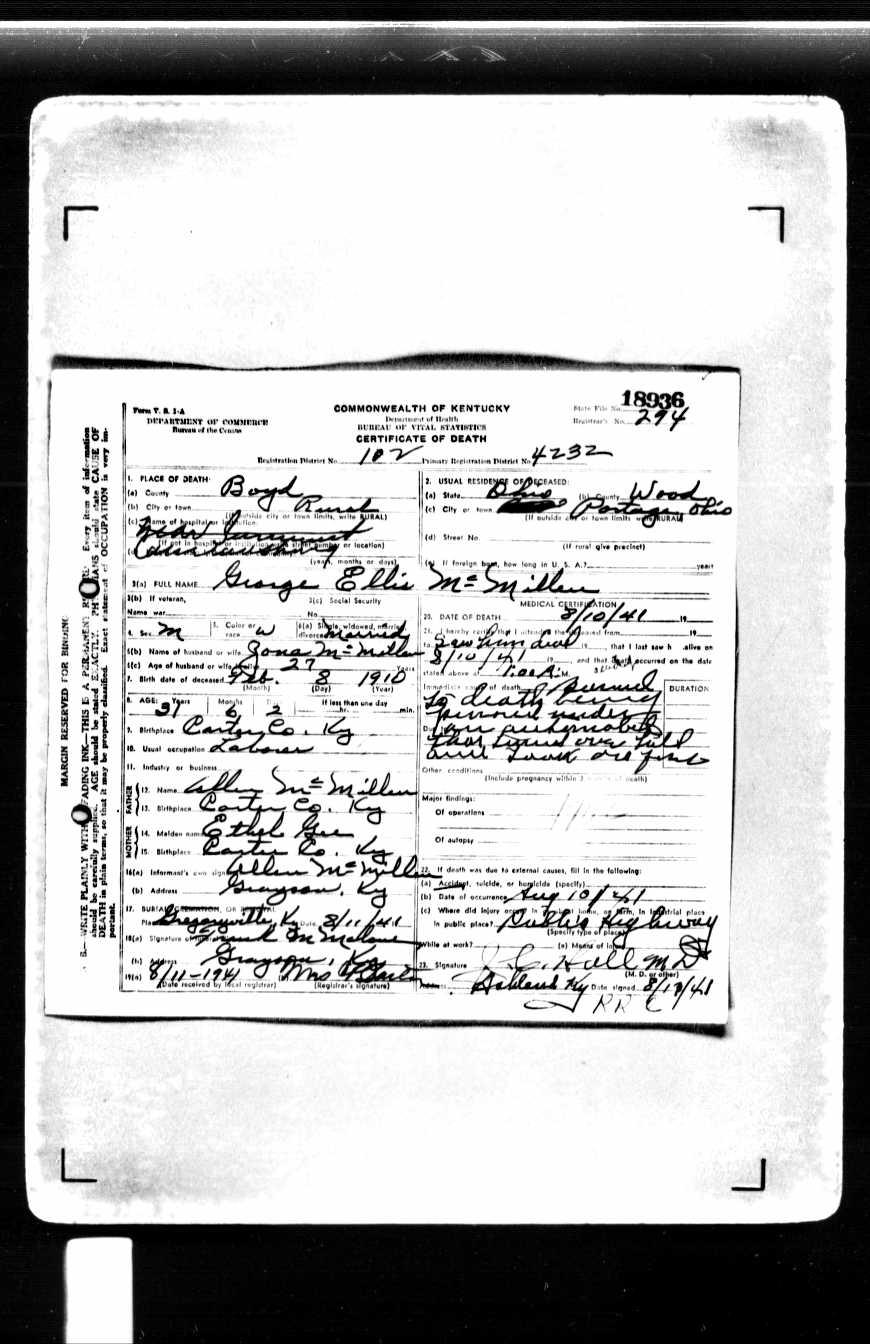 18936
Form V. S. 1-A
COMMONWEALTH OF KENTUCKY
State File No.
DEPARTMENT OF COMMERCE
Department of Health
Registrar's No. 294
Bureau of the Census
BUREAU OF VITAL STATISTICS
CERTIFICATE OF DEATH
Registration District No. 102 Primary Registration District No. 4232
MARGIN RESERVED FOR BINDING
WRITE PLAINLY WITH UNFADING INK—THIS IS A PERMANENT Every item of information
should be carefully supplied. AGE should be stated EXACTLY. should state CAUSE OF
DEATH in plain terms, so that it may be properly classified. Exact statement of OCCUPATION is very im-
portant.
1. PLACE OF DEATH:
(a) County Boyd
(b) City or town Rural
(If outside city or town limits, write RURAL)
(c) Name of hospital or institution:
Near
(If not in hospital or institution street number or location)
(years, months or days)
2. USUAL RESIDENCE OF DECEASED:
(a) State Ohio (b) County Wood
(c) City or town Portage, Ohio
(If outside city or town limits write RURAL)
(d) Street No.
(If rural give precinct)
(e) If foreign born, how long in U. S. A.? years
3(a) FULL NAME George Ellis McMillen
3(b) If veteran, 3(c) Social Security
Name war No.
4. Sex M 5. Color or race W 6(a) Single, widowed, married divorced Married
6(b) Name of husband or wife Zona McMillen
6(c) Age of husband or wife 27 Years
7. Birth date of deceased Feb. 8 1910
(Month) (Day) (Year)
8. AGE: Years Months Days If less than one day
31 6 2 hr. min.
9. Birthplace Carter Co. Ky
10. Usual occupation Laborer
11. Industry or business
FATHER
12. Name Allen McMillen
13. Birthplace Carter Co. Ky
MOTHER
14. Maiden name Ethel Gee
15. Birthplace Carter Co. Ky
16(a) Informant's own sign Allen McMillen
(b) Address Grayson, Ky
17. BURIAL, CREMATION, OR REMOVAL
Place Gregoryville, Ky Date 8/11/41
18(a) Signature of Frank M Malone
(b) Address Grayson, Ky
19(a) 8/11-1941 (b) Mrs
(Date received by local registrar) (Registrar's signature)
MEDICAL CERTIFICATION
20. DATE OF DEATH 8/10/41 19
21. I hereby certify that I attended the deceased from 19
to Saw him dead 19 , that I last saw h alive on
8/10/41 19 , and that death occurred on the date
stated above at 1:00 A. M.
Immediate cause of death Burned
DURATION
to death being
pinned under
Due an automobile
that turned over
and took on fire
Other conditions
(Include pregnancy within 3 months of death)
Major findings:
Of operations
Of autopsy
22. If death was due to external causes, fill in the following:
(a) Accident, suicide, or homicide (specify)
(b) Date of occurrence Aug 10/41
(c) Where did injury occur? In home, on farm, in industrial place
in public place? Public Highway
(Specify type of place)
While at work? (e) Means of injury
23. Signature J. C. Hall M D
(M. D. or other)
Address Ashland Ky Date signed 8/10/41